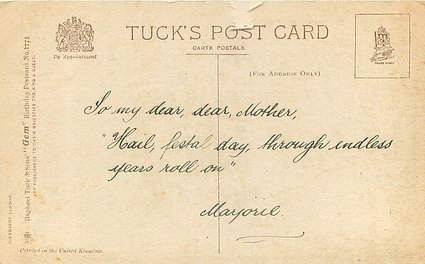 TUCK'S POST CARD
CARTE POSTALE
By Appointment
(FOR ADDRESS ONLY)
To my dear, dear, Mother,
"Hail, festal day, through endless
years roll on"
Marjorie.
Raphael Tuck & Sons' "Gem" Birthday Postcard No. 1771
ART PUBLISHERS TO THEIR MAJESTIES THE KING & QUEEN.
COPYRIGHT LONDON
Printed in the United Kingdom.